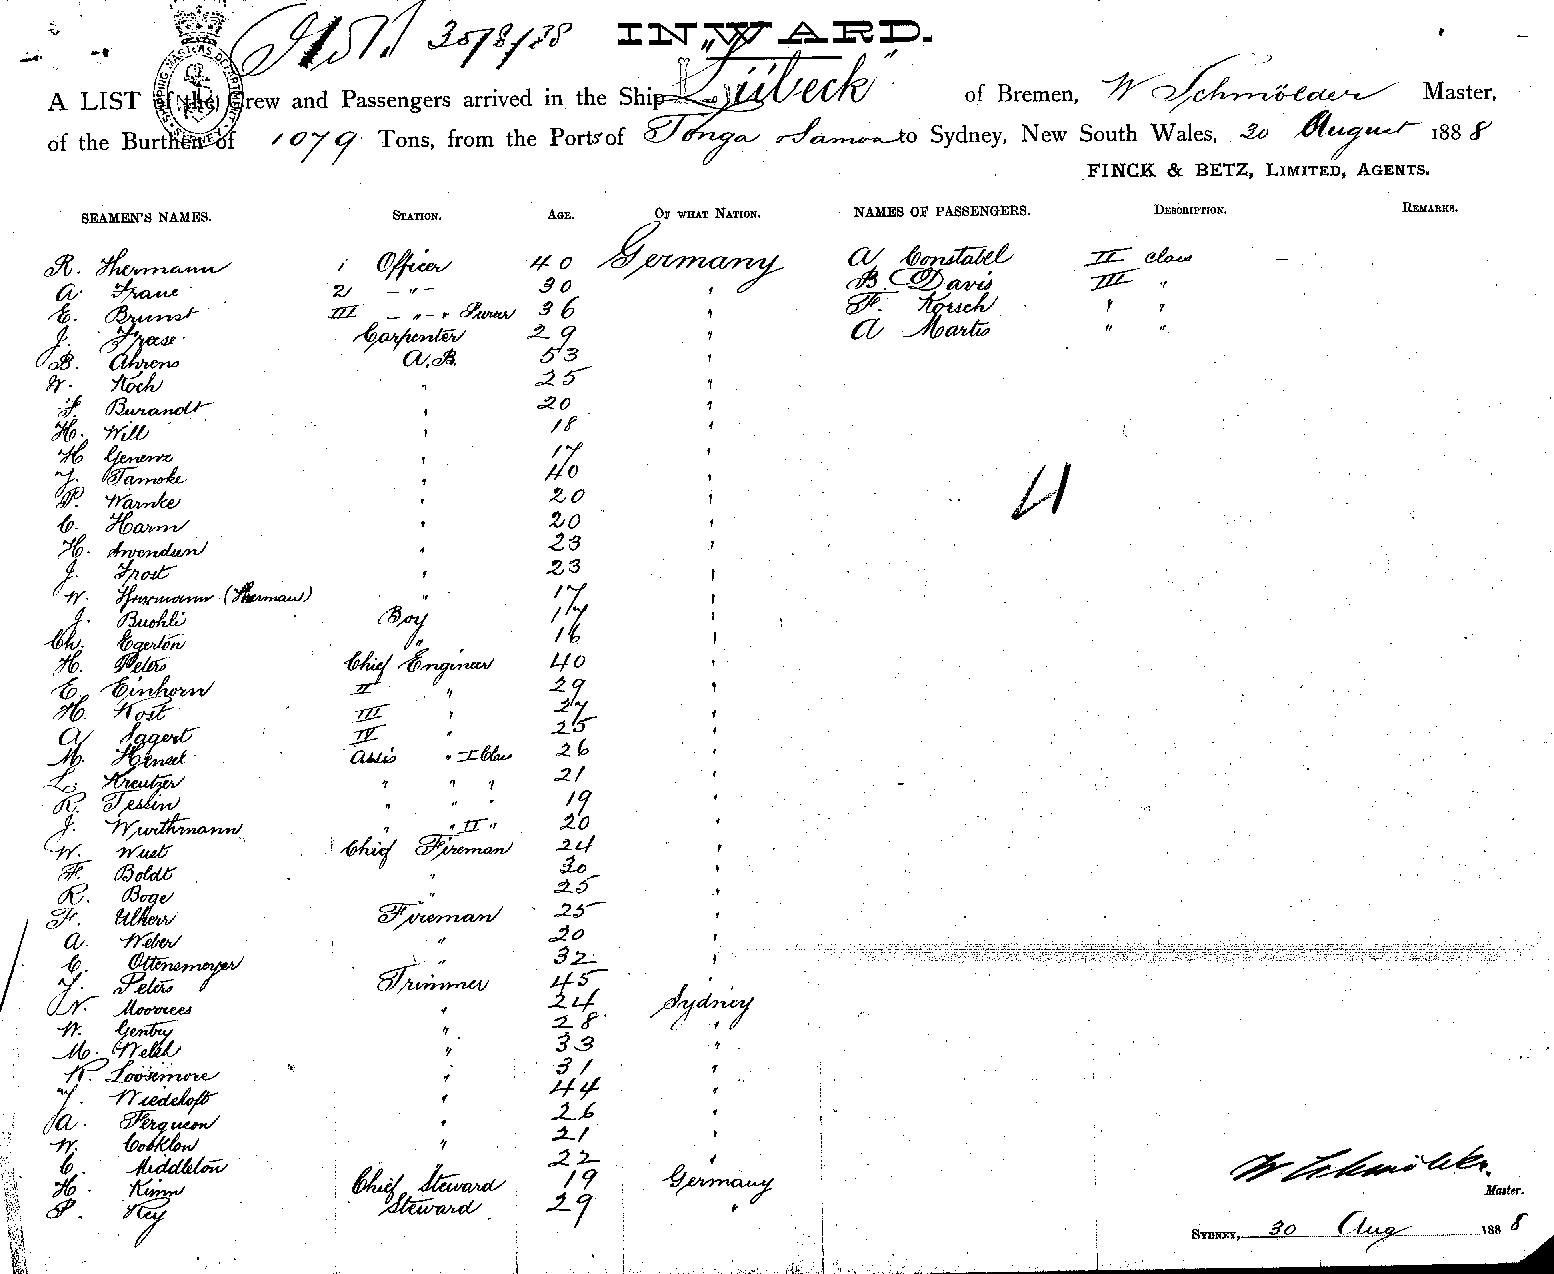 30/8/88 INWARD.
A LIST of the Crew and Passengers arrived in the Ship "Lübeck" of Bremen, W Schmölder Master,
of the Burthen of 1079 Tons, from the Ports of Tonga Samoa to Sydney, New South Wales, 30 August 1888
FINCK & BETZ, LIMITED, AGENTS.
SEAMEN'S NAMES. STATION. AGE. OF WHAT NATION. NAMES OF PASSENGERS. DESCRIPTION. REMARKS.
R. Hermann 1 Officer 40 Germany A Constabel II class
A. 2 - " - 30 " B. Davis III "
E. Brunst III - " - " 36 " F. Korsch " "
J. Frese Carpenter 29 " A Martis " "
B. Ahrens A.B. 53 "
W. Koch " 25 "
Burandt " 20 "
H. Will " 18 "
H Genenz " 17 "
J. Tamoke " 40 "
P. Warnke " 20 "
C. Harm " 20 "
H. Swendsen " 23 "
J. Frost " 23 "
W. Herrmann (Herman) " 17 "
J. Buohli Boy 17 "
Ch. Egerton " 16 "
H. Peters Chief Engineer 40 "
E. Einhorn II " 29 "
H. Kost III " 27 "
A Sagert IV " 25 "
M. Hensel Assis " I Class 26 "
L. Kreutzer " " " 21 "
R. Tessin " " " 19 "
J. Wurthmann " " II " 20 "
W. Wust Chief Fireman 24 "
F. Boldt " 30 "
R. Boge " 25 "
F. Ulherr Fireman 25 "
A. Weber " 20 "
C. Ottensmeyer " 32 "
J. Peters Trimmer 45 "
N. Moovices " 24 Sydney
W. Gentry " 28 "
M. Welsh " 33 "
R. Loosemore " 31 "
J. Wiedehoft " 44 "
A. Ferguson " 26 "
W. Cocklon " 21 "
C. Middleton " 22 "
H. Kimm Chief Steward 19 Germany
P. Key Steward 29 "
4
W Schmölder
Master.
SYDNEY, 30 Aug 1888